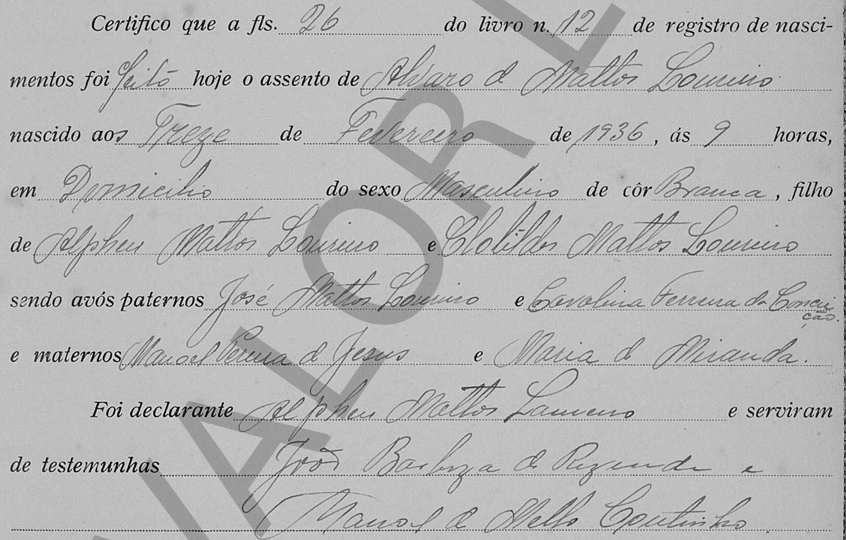 Certifico que a fls. 26 do livro n. 12 de registro de nasci-
mentos foi feito hoje o assento de Alvaro d Mattos Loureiro
nascido aos Treze de Fevereiro de 1936, ás 9 horas,
em Domicilio do sexo Masculino de côr Branca, filho
de Alpheu Mattos Loureiro e Clotildes Mattos Loureiro
sendo avós paternos José Mattos Loureiro e Carolina Ferreira da Concei
ção.
e maternos Manoel Pereira d Jesus e Maria d Miranda.
Foi declarante Alpheu Mattos Loureiro e serviram
de testemunhas João Barboza de Rezende e
Manoel d Mello Coutinho
VALOR